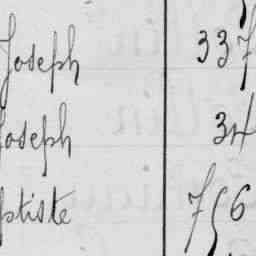 Joseph 337
Joseph 34
ptiste 756